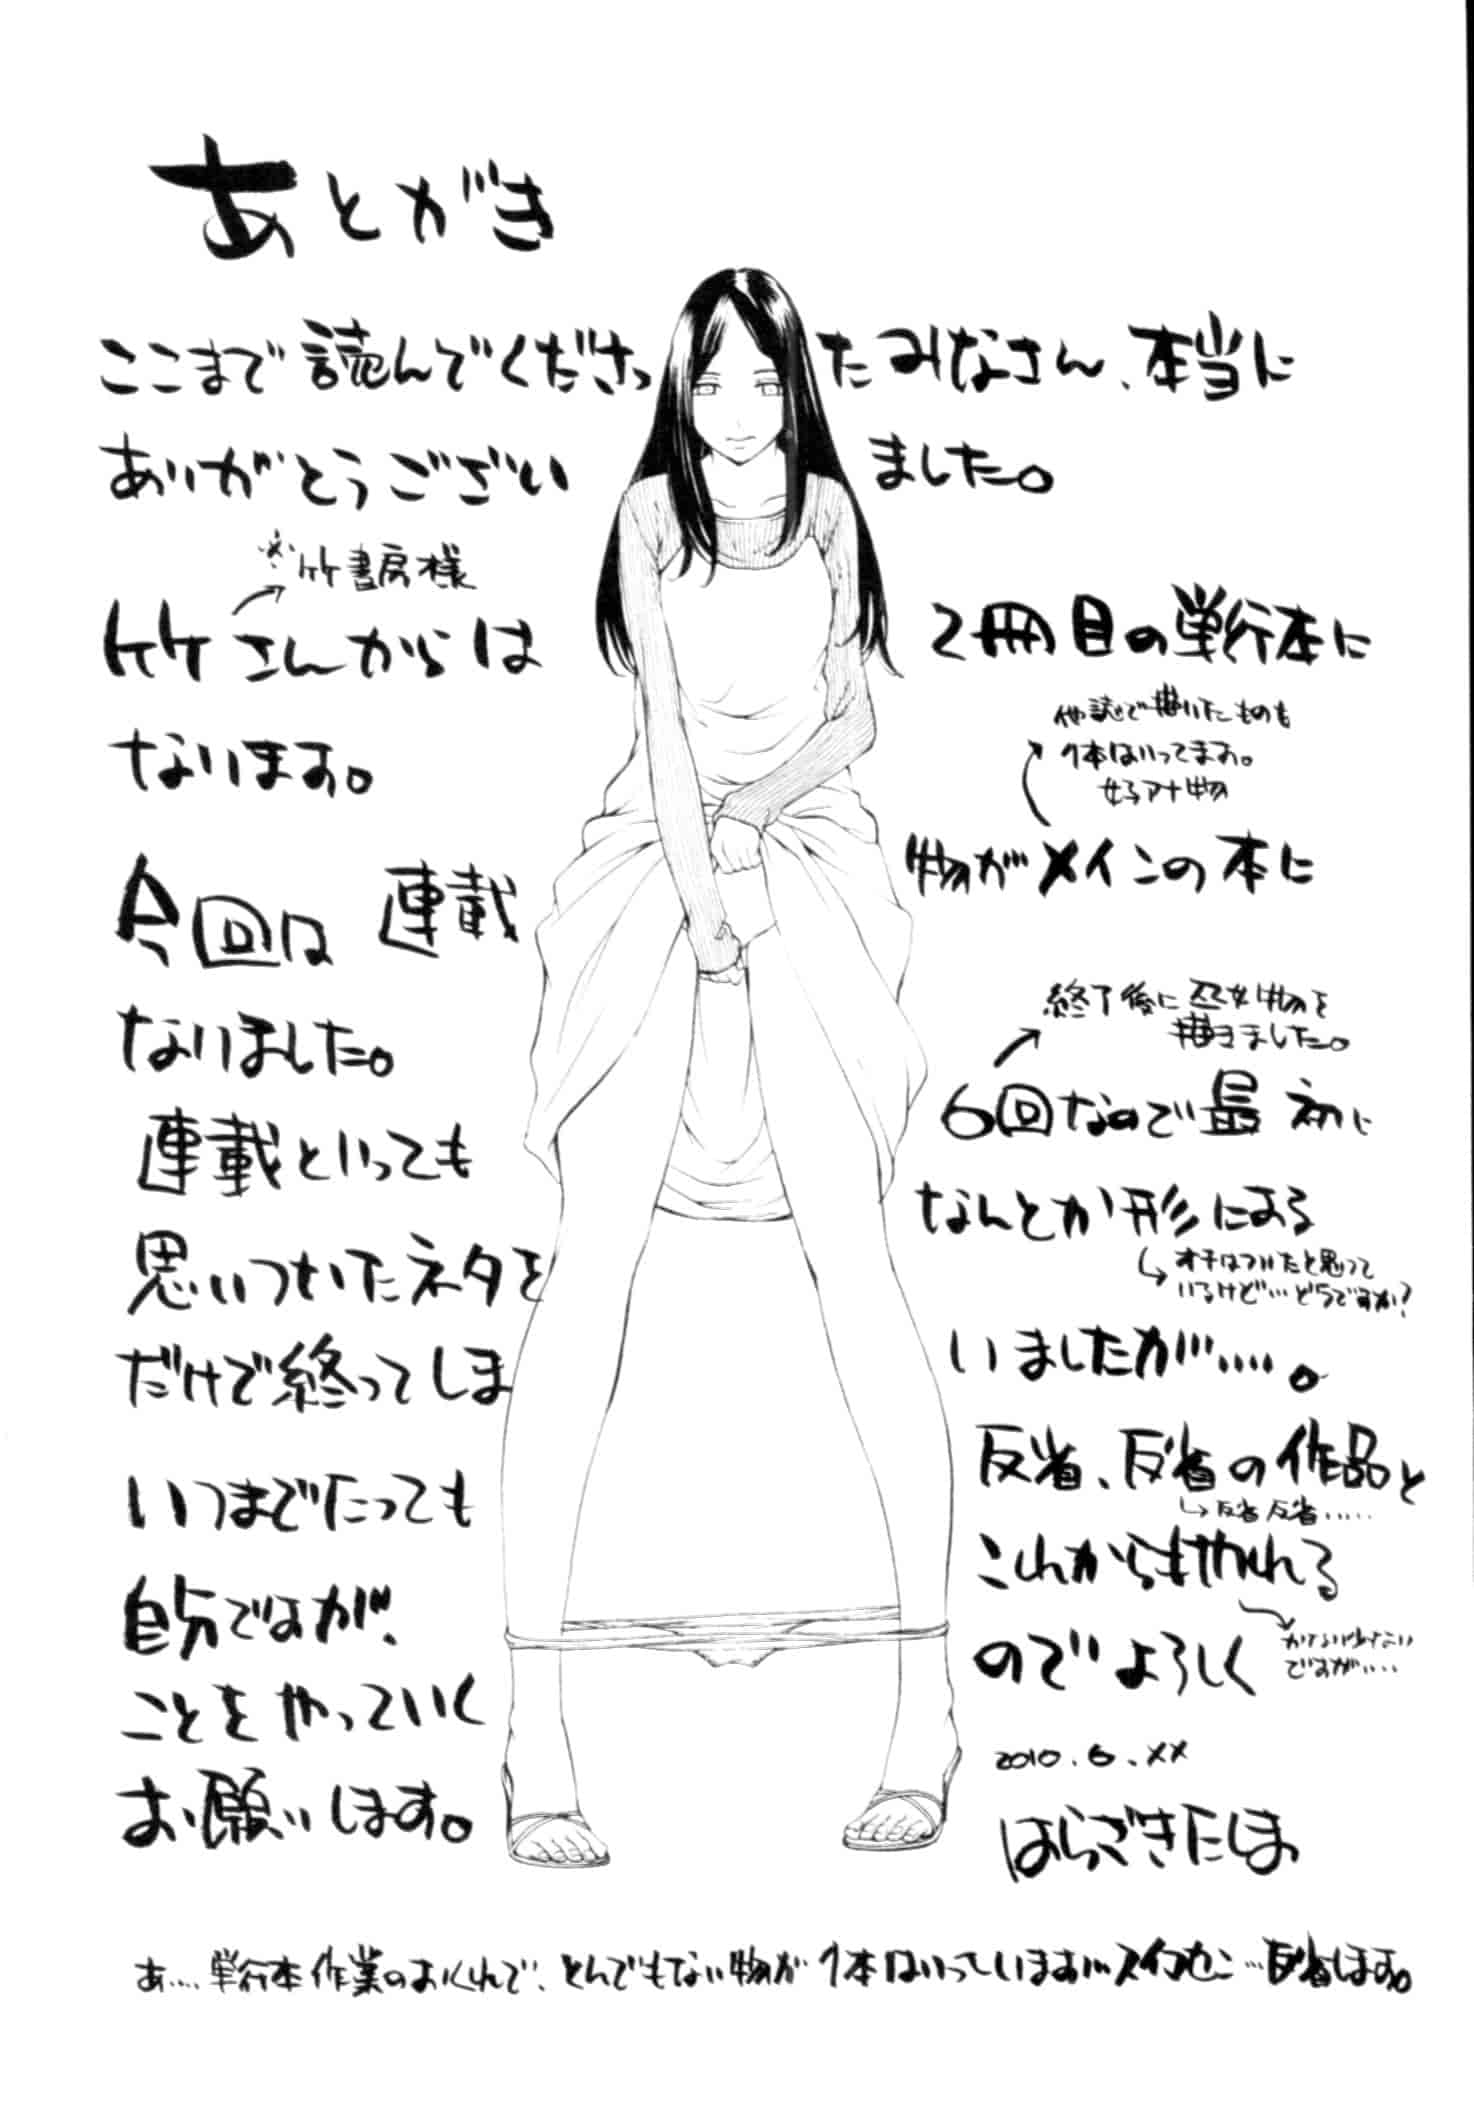 あとがき
ここまで読んでくださったみなさん、本当に
ありがとうございました。
※竹書房様
竹さんからは2冊目の単行本に
なります。
他誌で描いたものも
1本はいってます。
女子アナ物
今回は連載物がメインの本に
なりました。
終了後に巫女物を
描きました。
連載といっても6回なので最初に
思いついたネタをなんとか形にする
オチはついたと思って
いるけど…どうですか?
だけで終ってしまいましたが……。
いつまでたっても反省、反省の作品と
反省反省……
自分ですが、これからもやれる
かなり少ない
ですが……
ことをやっていくのでよろしく
お願いします。
2010.6.××
はらざきたくま
あ…..単行本作業のおくれで、とんでもない物が1本はいっています…スイマセン…反省します。